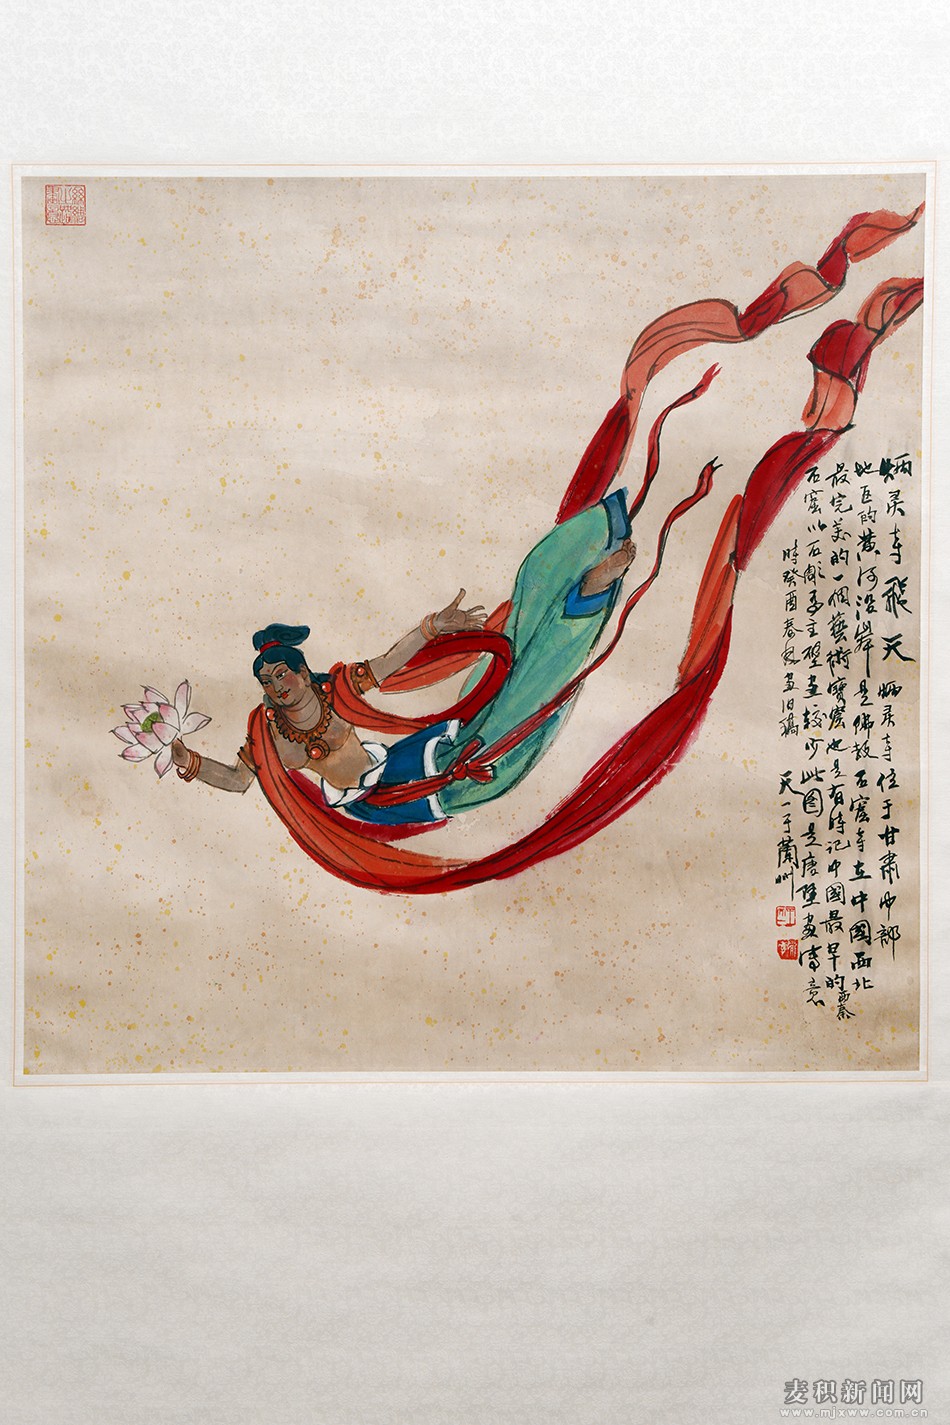 炳灵寺飛天 炳灵寺位于甘肃中部
地区的黄河沿岸是佛教石窟寺在中國西北
最完美的一個藝術寶窟也是有時记中國最早的西秦
石窟以石彫为主壁画较少此图是唐壁画傳意
時癸酉春 画旧稿
天一于蘭州
麦积新闻网
www.mjxww.com.cn